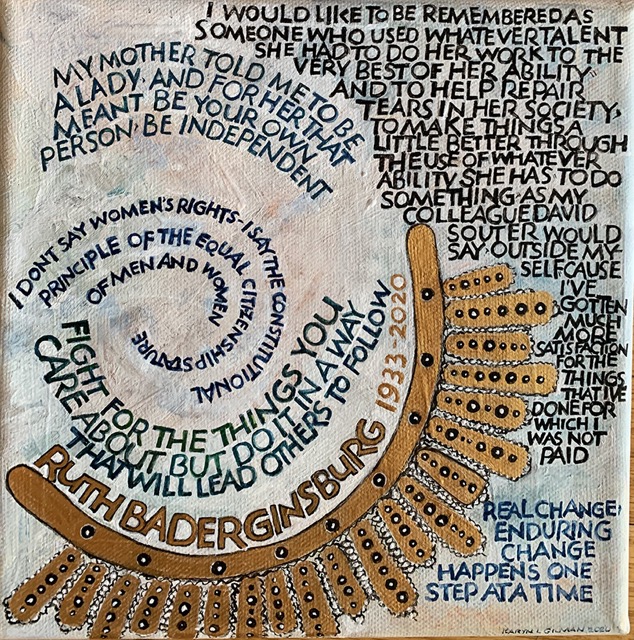 I WOULD LIKE TO BE REMEMBERED AS
SOMEONE WHO USED WHATEVER TALENT
SHE HAD TO DO HER WORK TO THE
VERY BEST OF HER ABILITY
AND TO HELP REPAIR
TEARS IN HER SOCIETY,
TO MAKE THINGS A
LITTLE BETTER THROUGH
THE USE OF WHATEVER
ABILITY SHE HAS TO DO
SOMETHING AS MY
COLLEAGUE DAVID
SOUTER WOULD
SAY OUTSIDE MY
SELF CAUSE
I'VE
GOTTEN
MUCH
MORE
SATISFACTION
FOR THE
THINGS
THAT I'VE
DONE FOR
WHICH I
WAS NOT
PAID
MY MOTHER TOLD ME TO BE
A LADY. AND FOR HER THAT
MEANT BE YOUR OWN
PERSON BE INDEPENDENT
I DONT SAY WOMEN'S RIGHTS-I SAY THE CONSTITUTIONAL
PRINCIPLE OF THE EQUAL CITIZENSHIP STATURE
OF MEN AND WOMEN
FIGHT FOR THE THINGS YOU
CARE ABOUT BUT DO IT IN A WAY
THAT WILL LEAD OTHERS TO FOLLOW
RUTH BADER GINSBURG 1933-2020
REAL CHANGE,
ENDURING
CHANGE
HAPPENS ONE
STEP AT A TIME
KARYN L GILMAN 2020